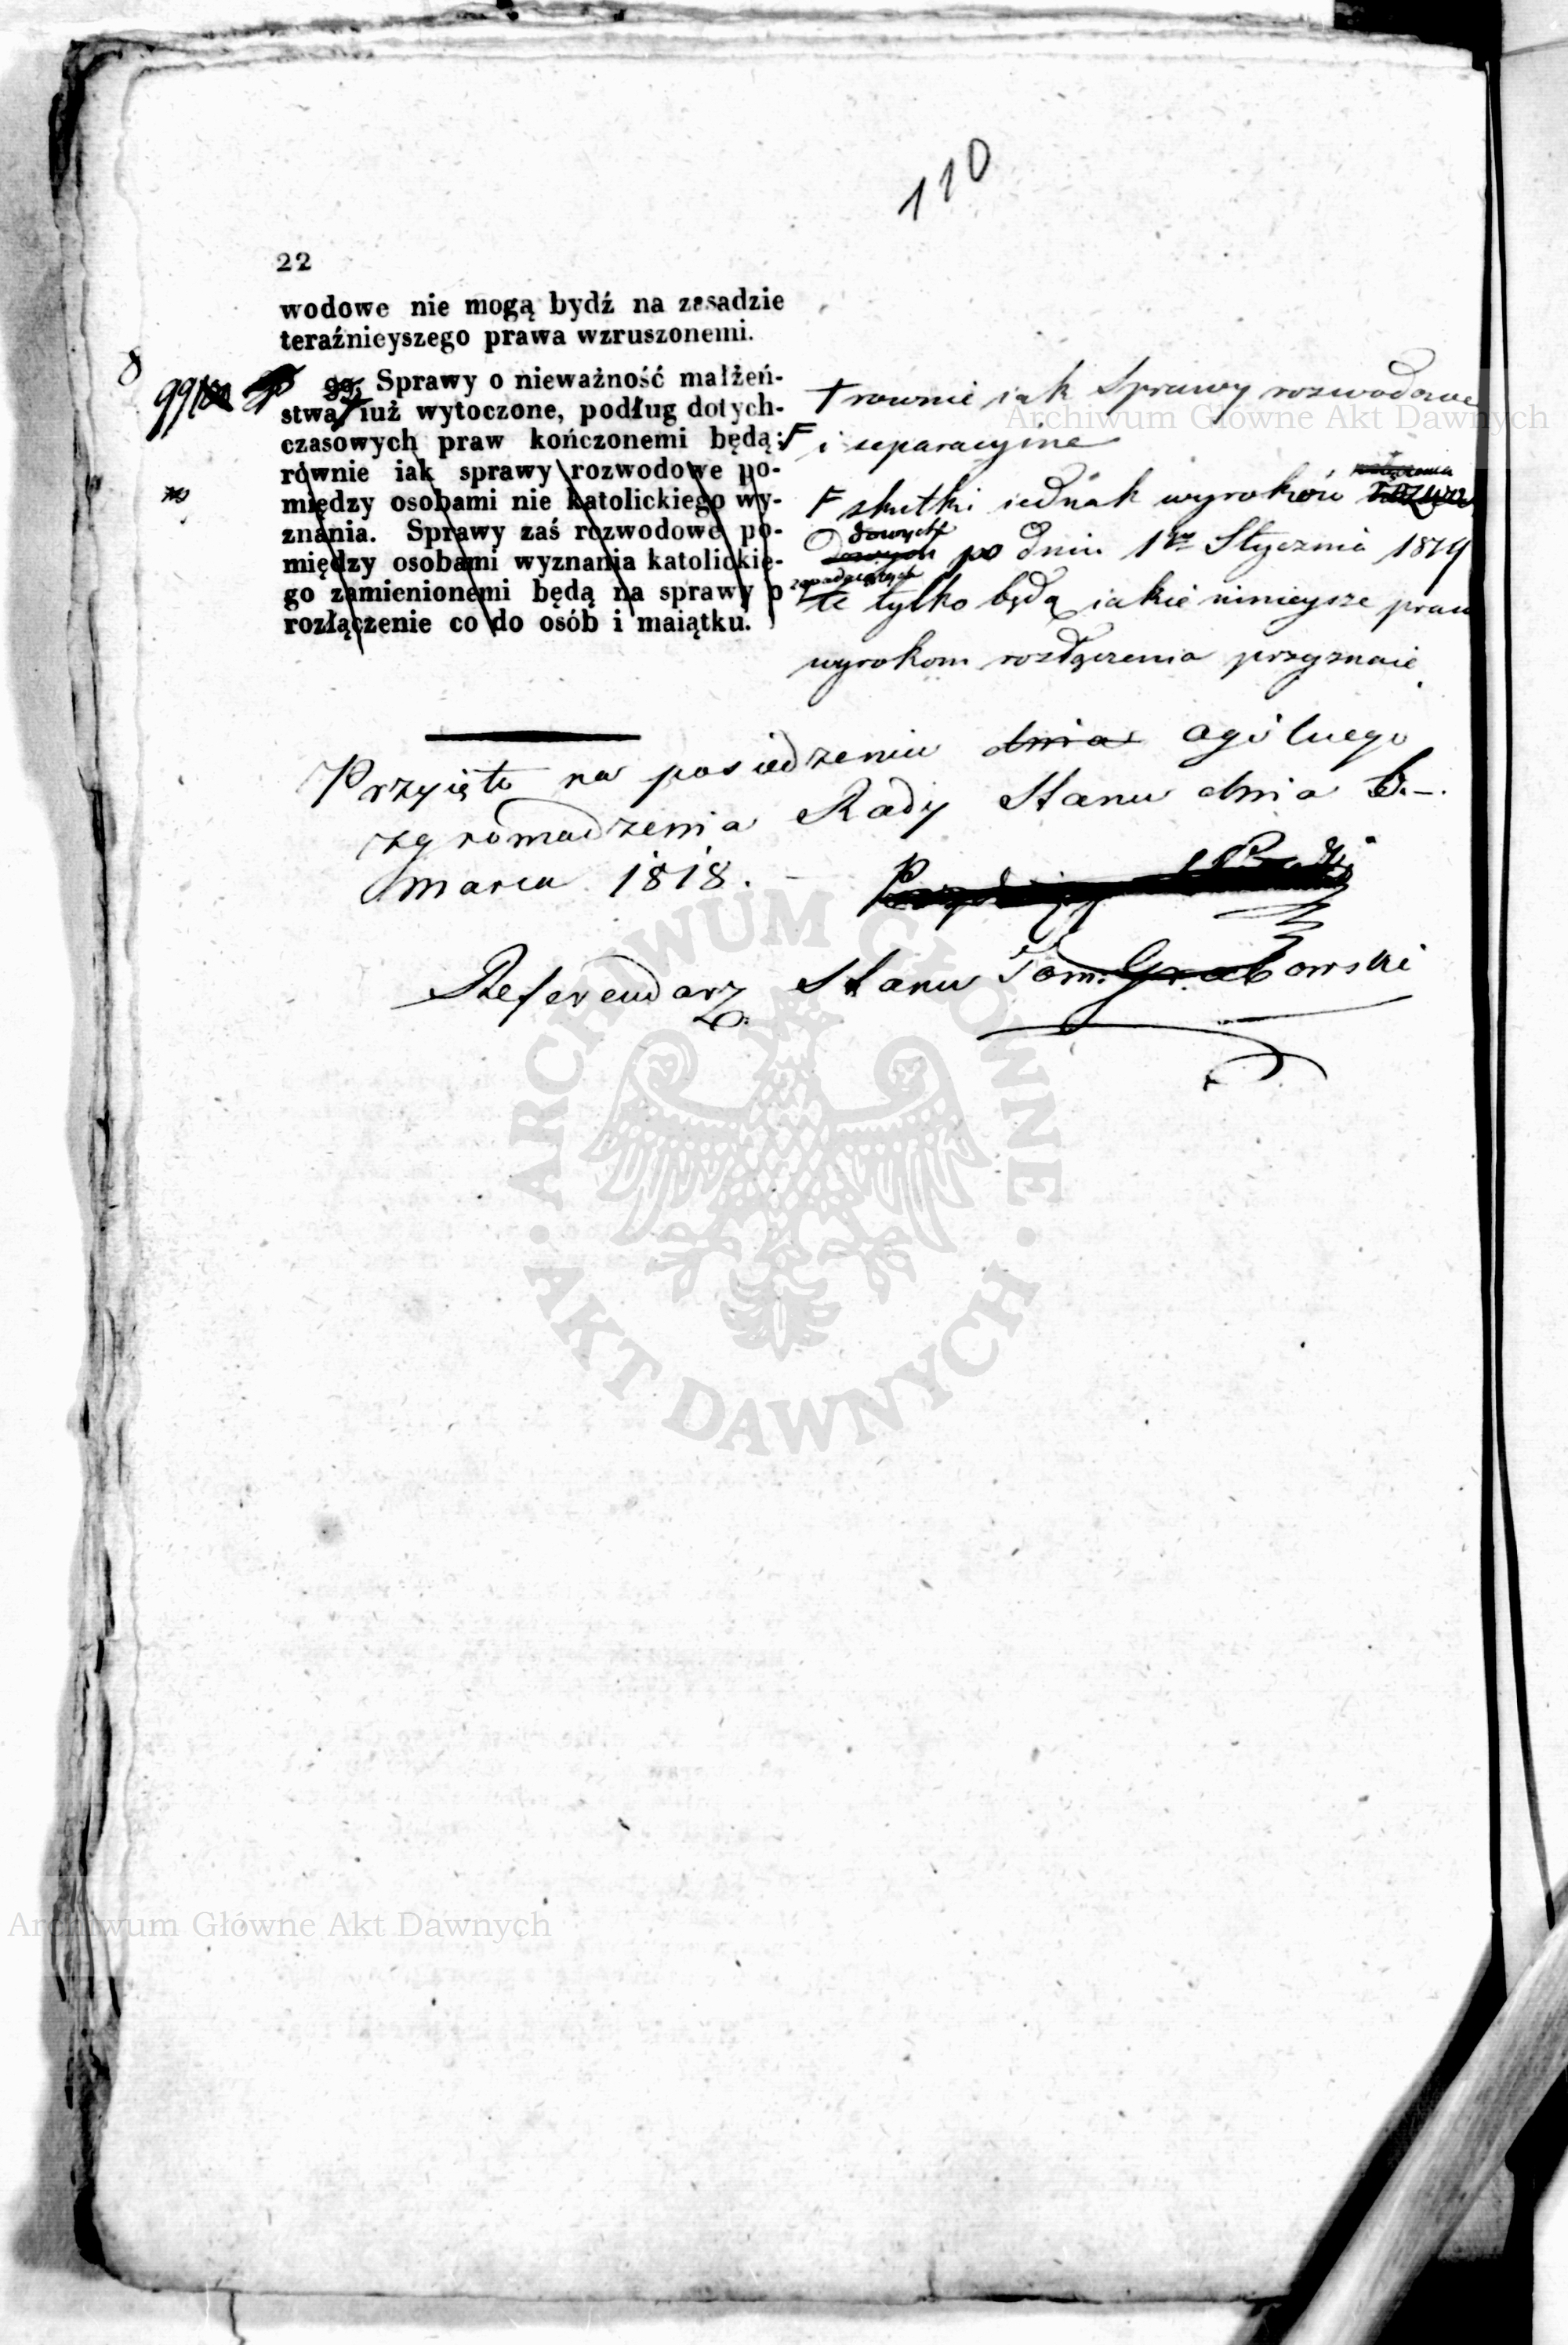 110
22
wodowe nie mogą bydź na zasadzie
teraźnieyszego prawa wzruszonemi.
99
99. Sprawy o nieważność małżeń-
stwa iuż wytoczone, podług dotych-
czasowych praw kończonemi będą;
równie iak sprawy rozwodowe po-
między osobami nie katolickiego wy-
znania. Sprawy zaś rozwodowe po-
między osobami wyznania katolickie-
go zamienionemi będą na sprawy o
rozłączenie co do osób i maiątku.
rownie iak Sprawy rozwodowe
i separacyine
F skutki iednak wyroków
zapadaiących
po Dniu 1go Stycznia 1819
te tylko będą iakie ninieysze praw
wyrokom rozłączenia przyznaie.
Przyięto na posiedzeniu dnia ogólnego
zgromadzenia Rady Stanu dnia
marca 1818.
Referendarz Stanu Tom. Grabowski
Archiwum Główne Akt Dawnych
ARCHIWUM GŁÓWNE
AKT DAWNYCH
Archiwum Główne Akt Dawnych